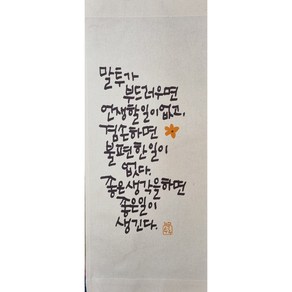 말투가
부드러우면
언쟁할일이없고,
겸손하면
불편한일이
없다.
좋은생각을하면
좋은일이
생긴다.